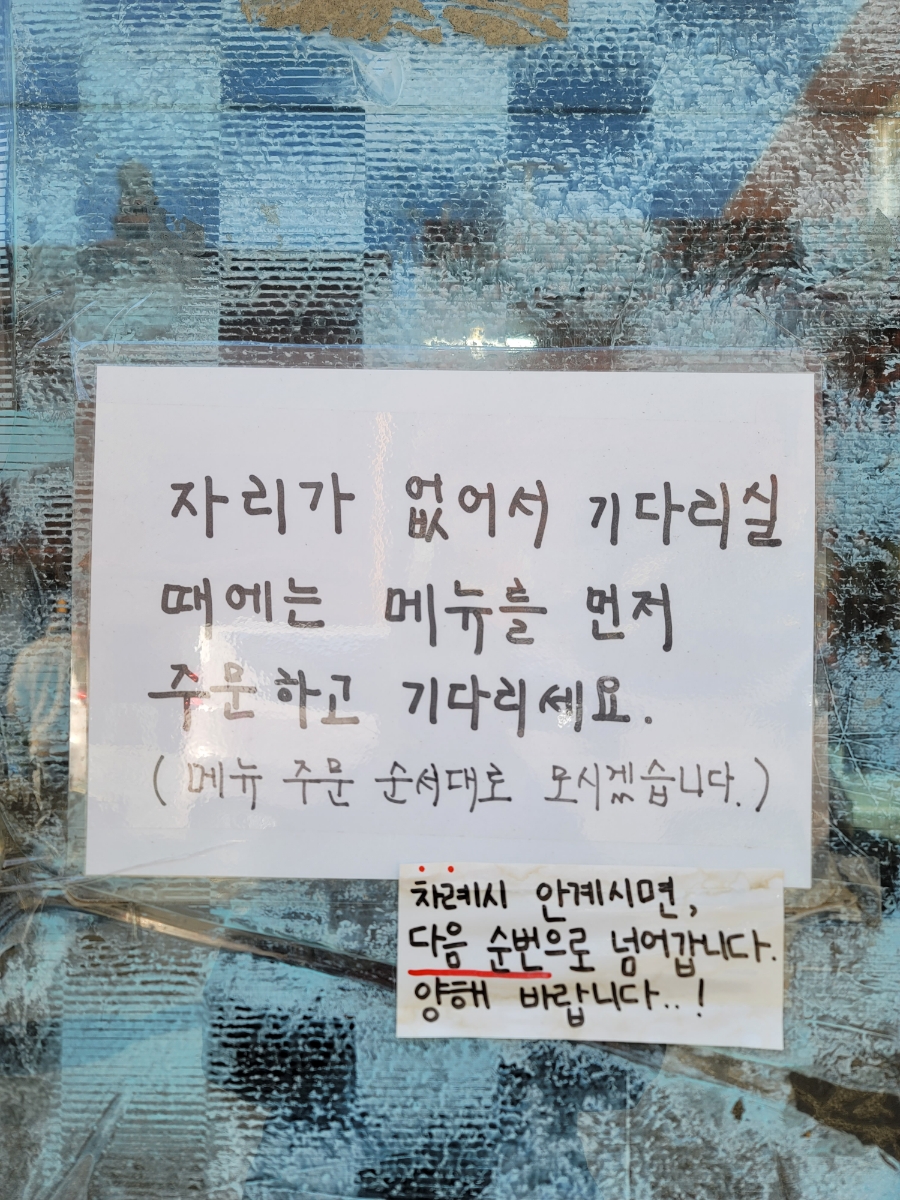 자리가 없어서 기다리실
때에는 메뉴를 먼저
주문하고 기다리세요.
( 메뉴 주문 순서대로 모시겠습니다. )
차례시 안계시면,
다음 순번으로 넘어갑니다.
양해 바랍니다..!